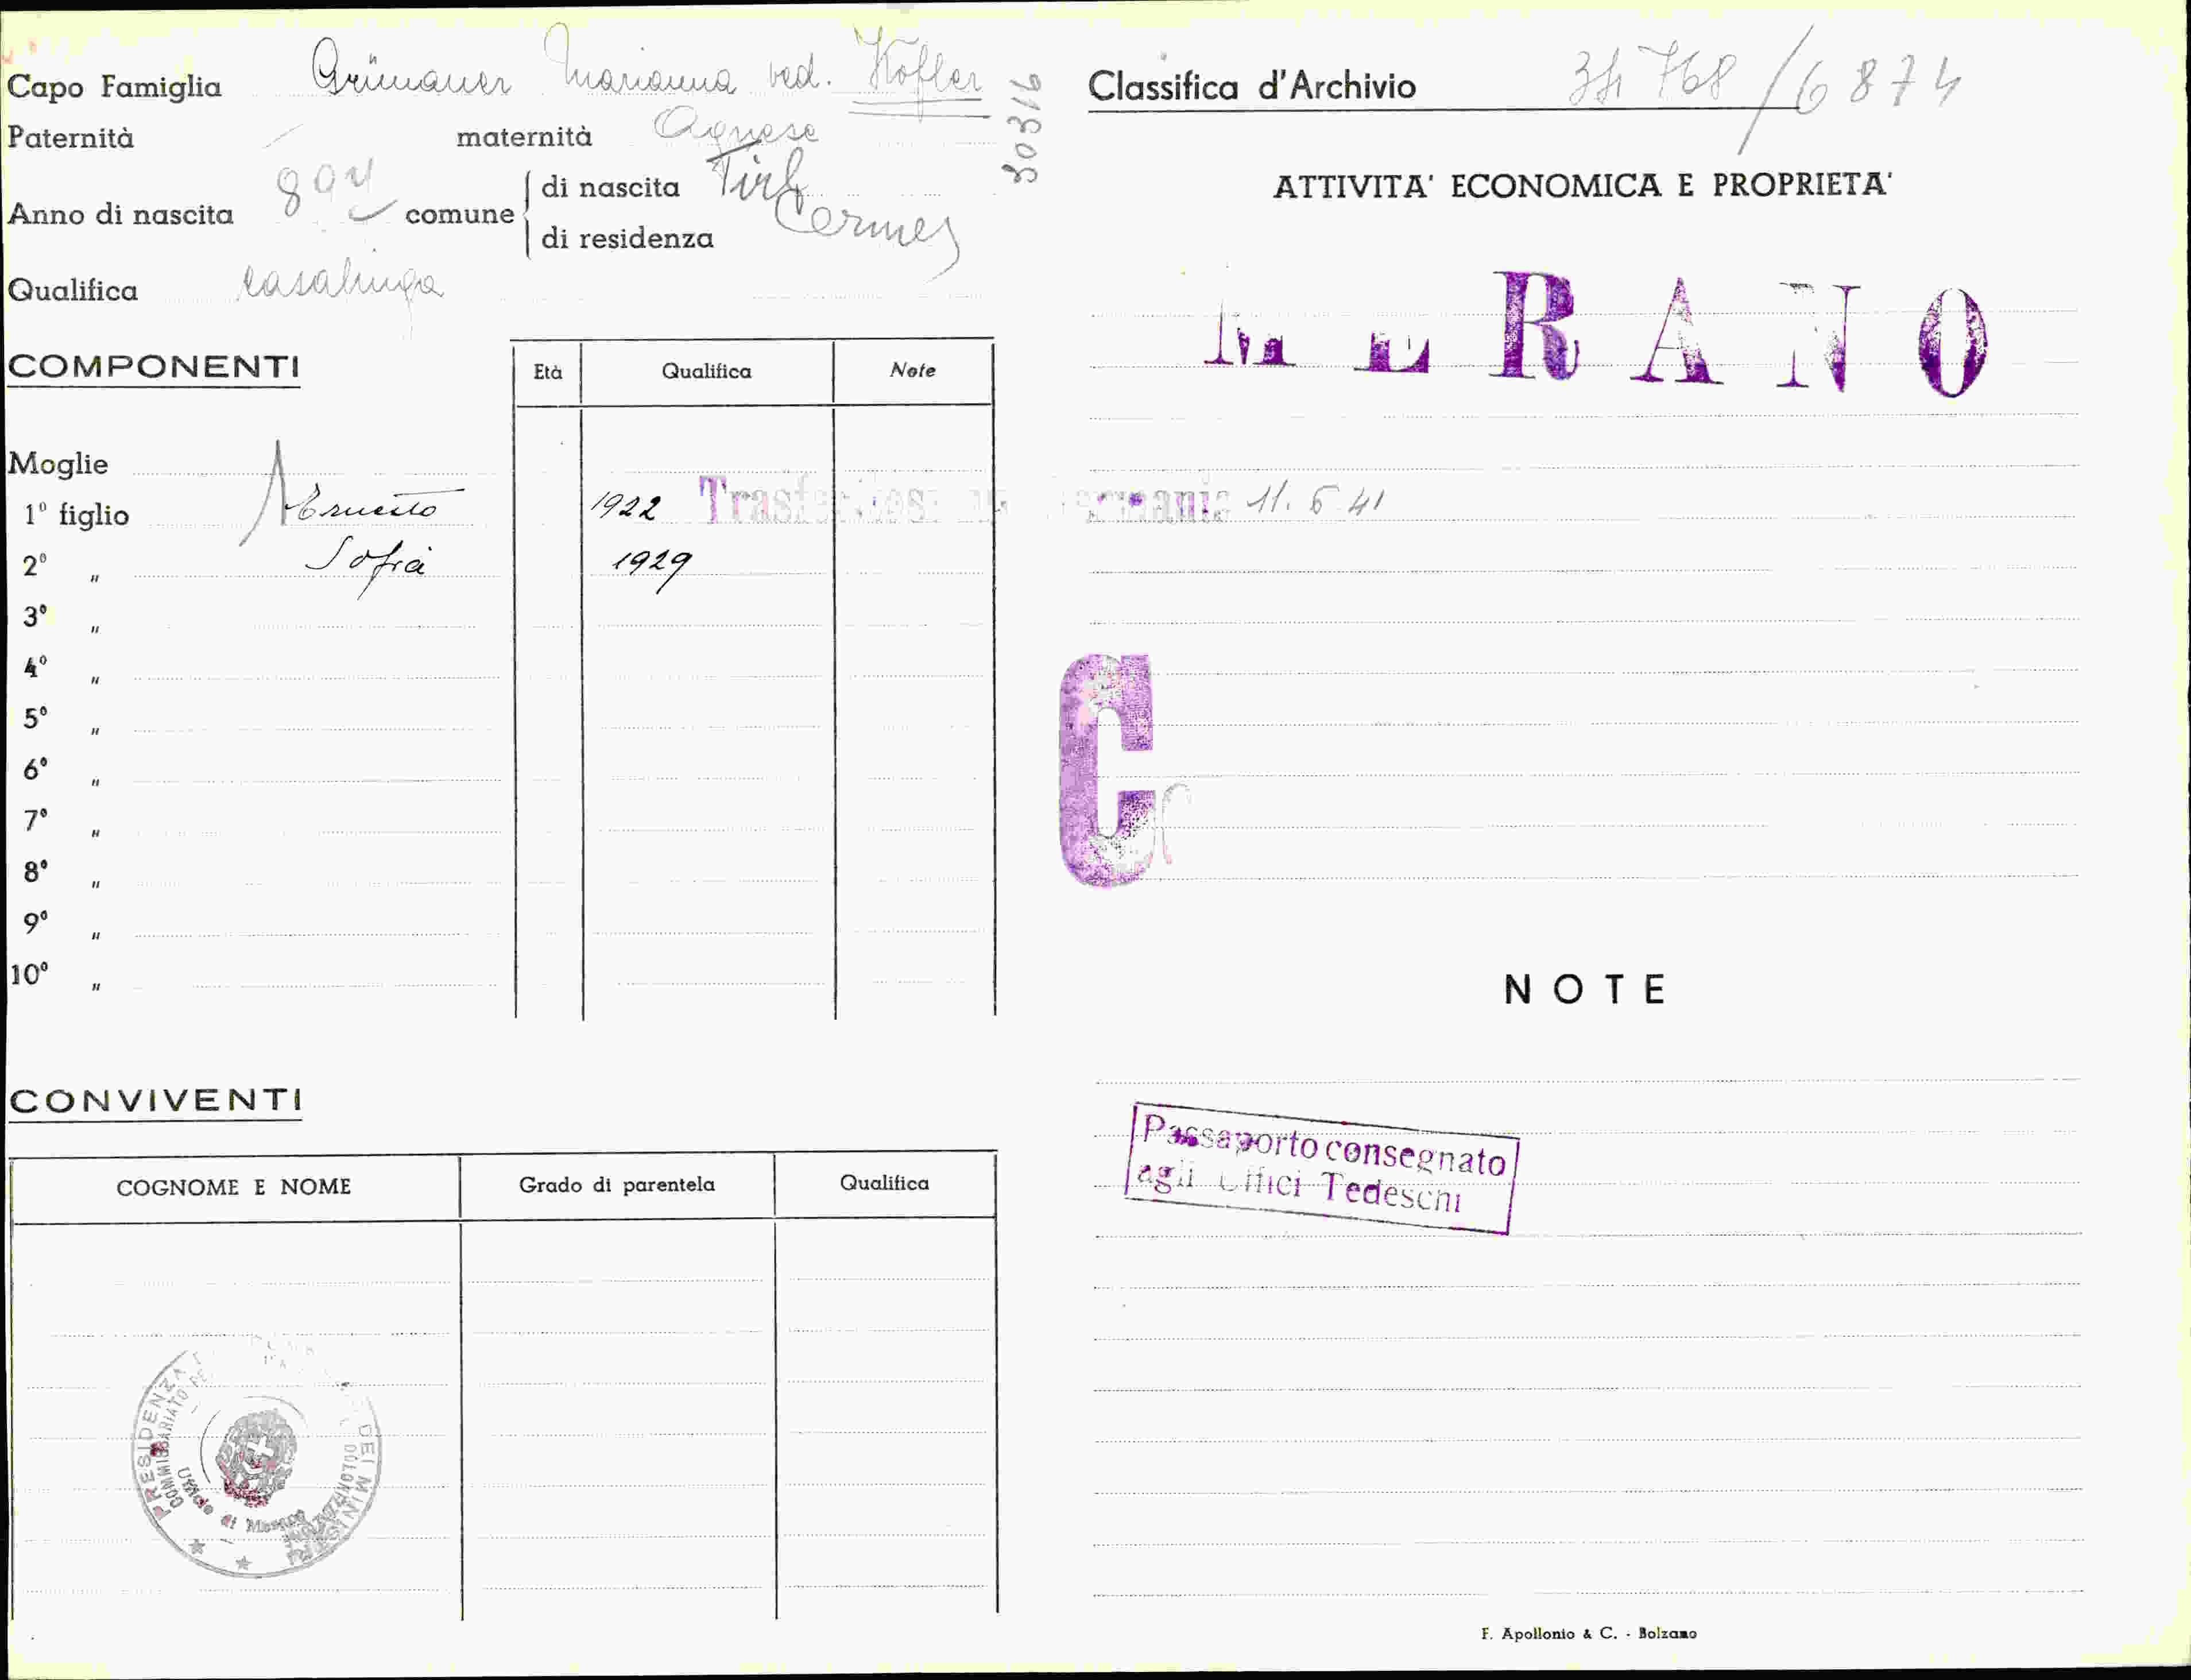 Capo Famiglia Grünauer Marianna ved. Kofler
30316
Paternità / maternità Agnese
Anno di nascita 894 comune di nascita Tirlo
di residenza Cermes
Qualifica casalinga
COMPONENTI
Età Qualifica Note
Moglie
1º figlio Ernesto 1922
Trasferitosi in Germania 11.6 41
2º " Sofia 1929
3º "
4º "
5º "
6º "
7º "
8º "
9º "
10º "
CONVIVENTI
COGNOME E NOME Grado di parentela Qualifica
PRESIDENZA DEI MINISTRI
COMMISSARIATO
Ufficio di Merano
Classifica d'Archivio 34768/6874
ATTIVITA' ECONOMICA E PROPRIETA'
MERANO
C
NOTE
Passaporto consegnato
agli Uffici Tedeschi
F. Apollonio & C. - Bolzano